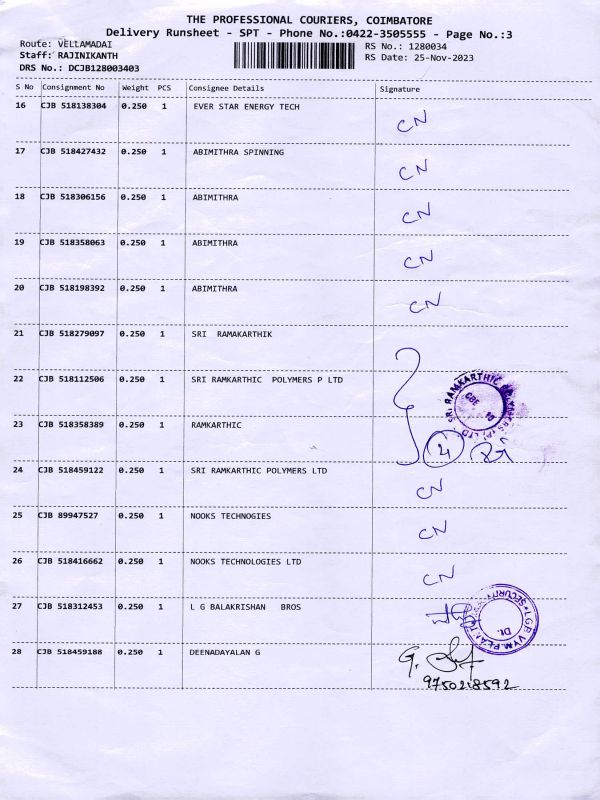 THE PROFESSIONAL COURIERS, COIMBATORE
Delivery Runsheet - SPT - Phone No.:0422-3505555 - Page No.:3
Route: VELLAMADAI RS No.: 1280034
Staff: RAJINIKANTH RS Date: 25-Nov-2023
DRS No.: DCJB128003403
S No Consignment No Weight PCS Consignee Details Signature
16 CJB 518138304 0.250 1 EVER STAR ENERGY TECH CN
17 CJB 518427432 0.250 1 ABIMITHRA SPINNING CN
18 CJB 518306156 0.250 1 ABIMITHRA CN
19 CJB 518358063 0.250 1 ABIMITHRA CN
20 CJB 518198392 0.250 1 ABIMITHRA CN
21 CJB 518279097 0.250 1 SRI RAMAKARTHIK
22 CJB 518112506 0.250 1 SRI RAMKARTHIC POLYMERS P LTD
SRI RAMKARTHIC
23 CJB 518358389 0.250 1 RAMKARTHIC
4
24 CJB 518459122 0.250 1 SRI RAMKARTHIC POLYMERS LTD CN
25 CJB 89947527 0.250 1 NOOKS TECHNOGIES CN
26 CJB 518416662 0.250 1 NOOKS TECHNOLOGIES LTD CN
27 CJB 518312453 0.250 1 L G BALAKRISHAN BROS
SECURITY * LGB VYM.PLANT
Dt.
28 CJB 518459188 0.250 1 DEENADAYALAN G
9750218592